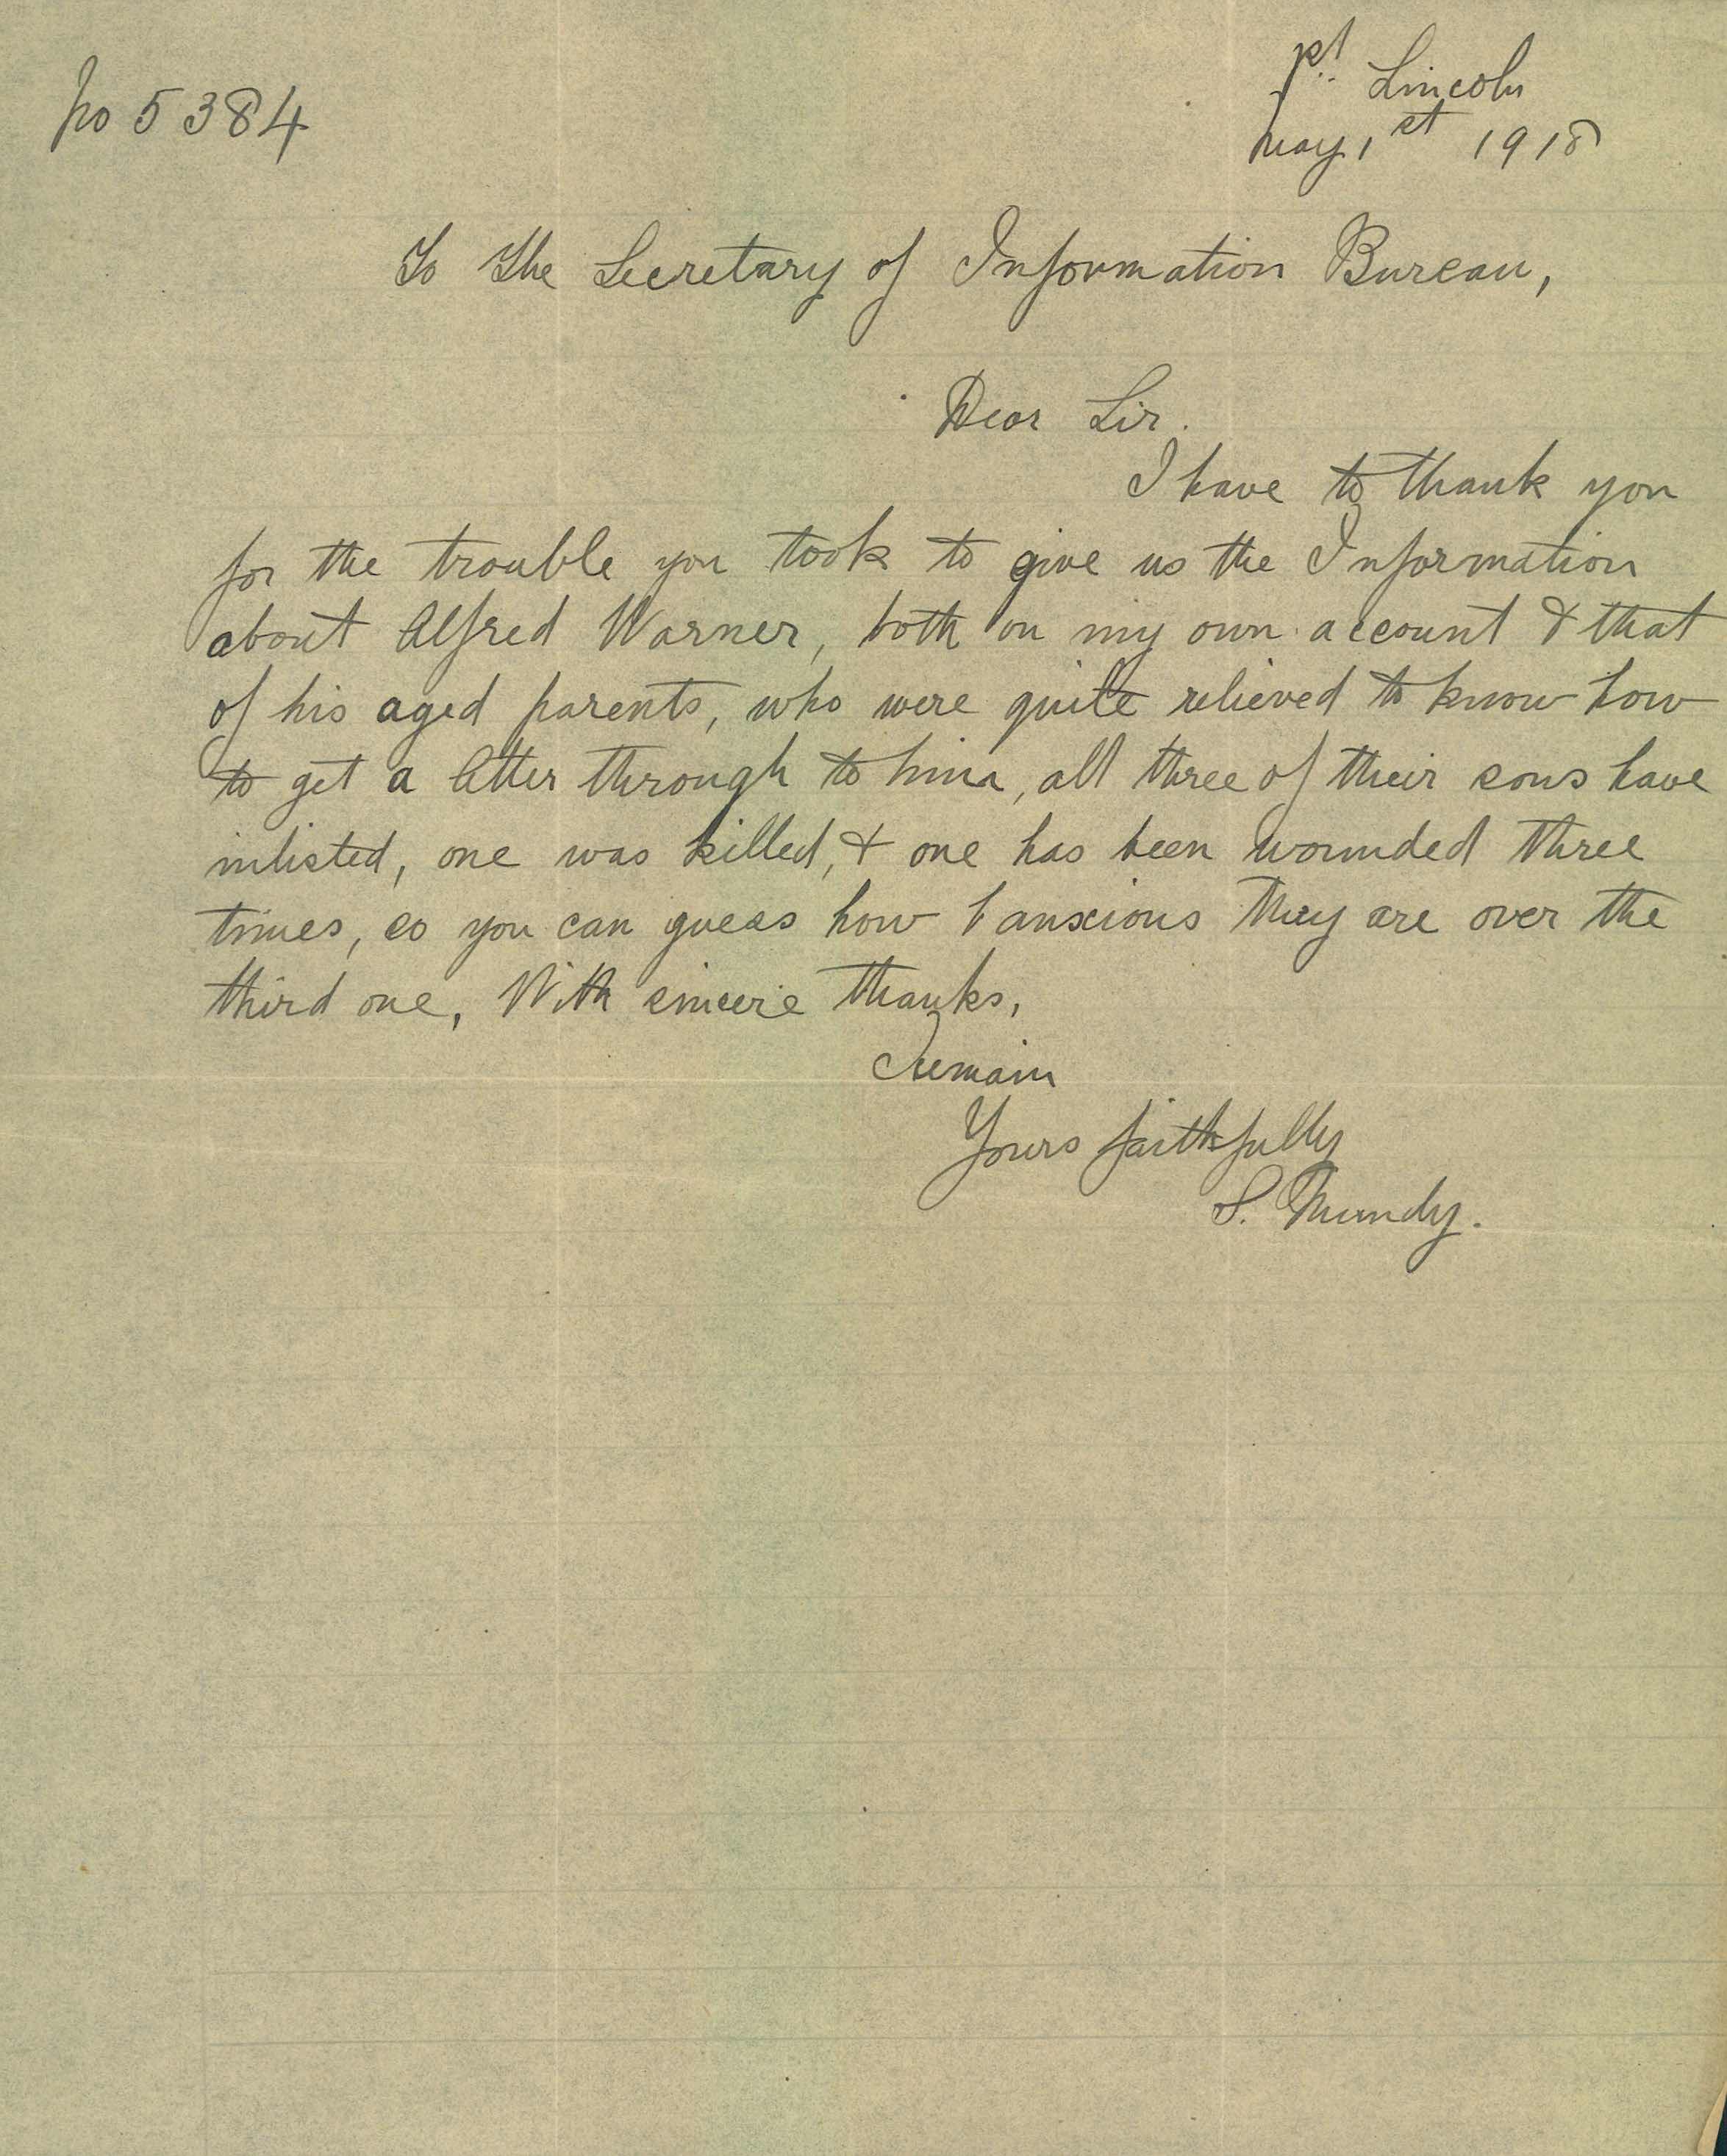 No 5384
Pt. Lincoln
May 1st 1918
To The Secretary of Information Bureau,
Dear Sir.
I have to thank you
for the trouble you took to give us the Information
about Alfred Warner, both on my own account & that
of his aged parents, who were quite relieved to know how
to get a letter through to him, all three of their sons have
inlisted, one was killed, & one has been wounded three
times, so you can guess how anxious they are over the
third one, With sincere thanks,
I remain
Yours faithfully
S. Mundy.